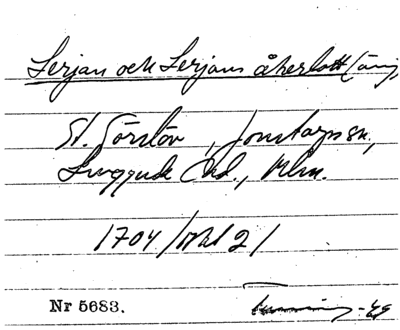 Serjan och Serjans åkerlott (äng)
St. Görslöv, Jonstorps sn,
Luggude hd., Mlm.
1704 / Mat 2 /
Nr 5683.